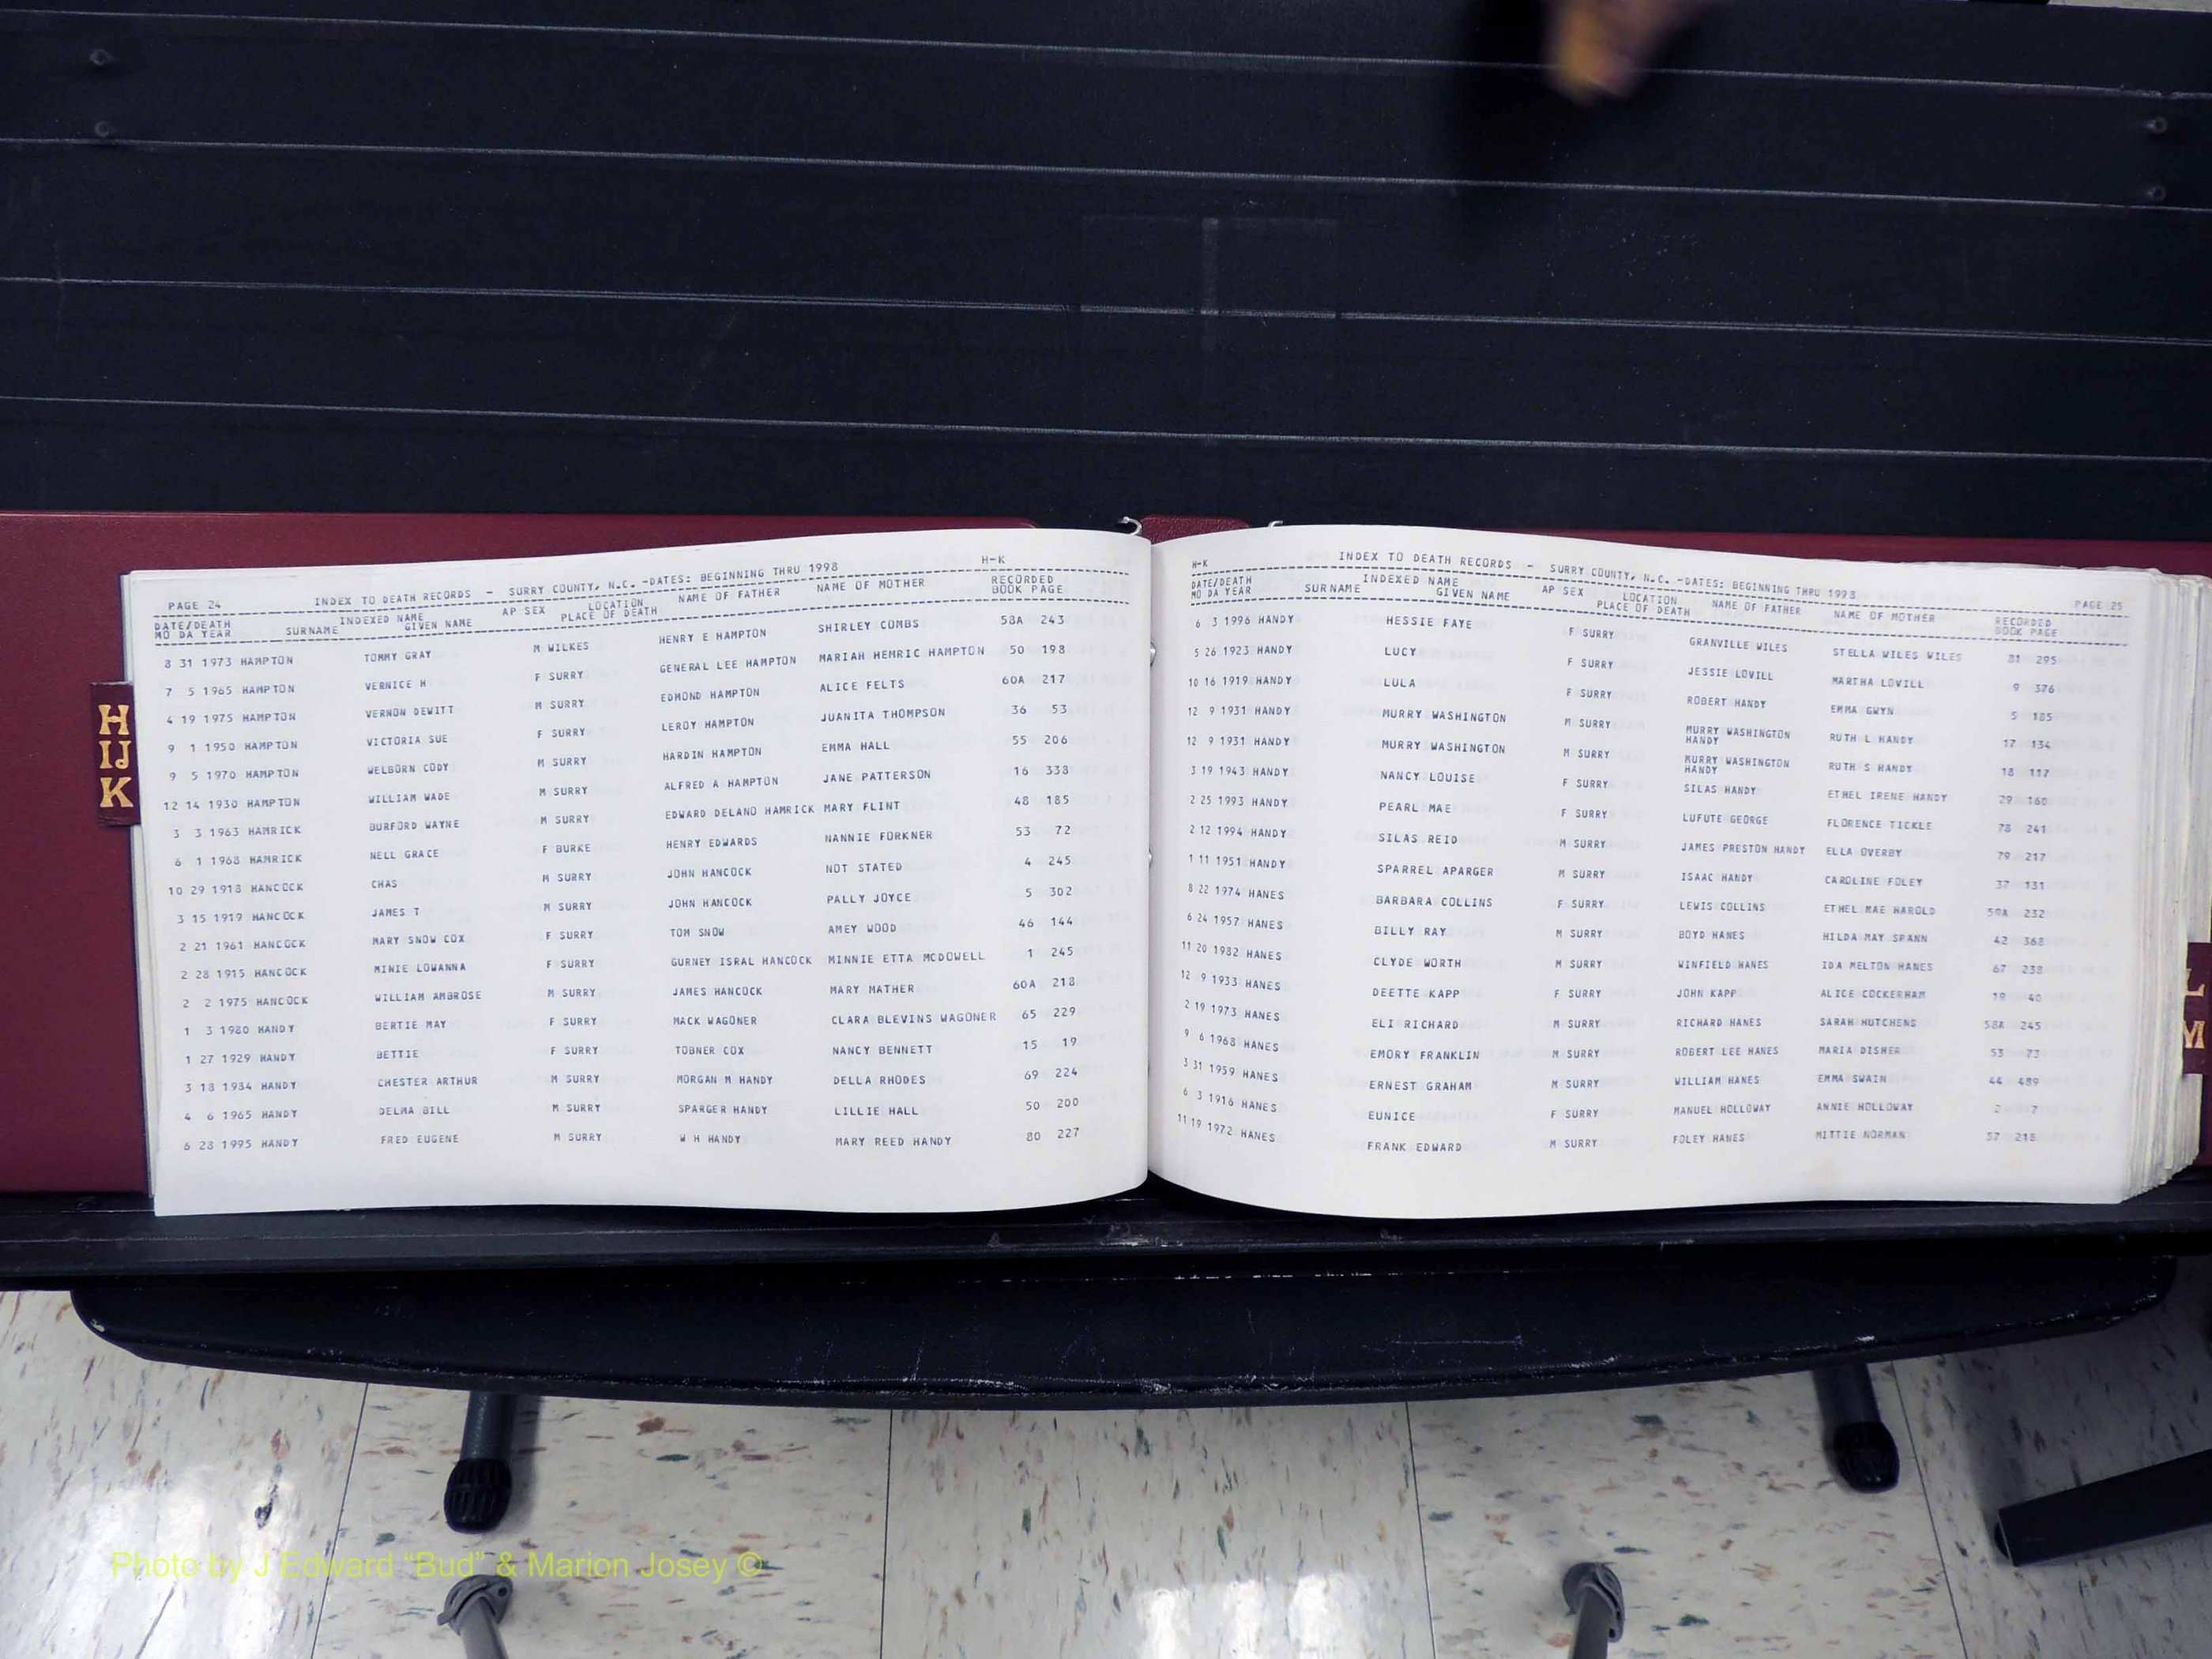 H
IJ
K
PAGE 24 INDEX TO DEATH RECORDS - SURRY COUNTY, N.C. -DATES: BEGINNING THRU 1998 H-K
DATE/DEATH INDEXED NAME AP SEX LOCATION NAME OF FATHER NAME OF MOTHER RECORDED
MO DA YEAR SURNAME GIVEN NAME PLACE OF DEATH BOOK PAGE
8 31 1973 HAMPTON TOMMY GRAY M WILKES HENRY E HAMPTON SHIRLEY COMBS 58A 243
7 5 1965 HAMPTON VERNICE H F SURRY GENERAL LEE HAMPTON MARIAH HEMRIC HAMPTON 50 198
4 19 1975 HAMPTON VERNON DEWITT M SURRY EDMOND HAMPTON ALICE FELTS 60A 217
9 1 1950 HAMPTON VICTORIA SUE F SURRY LEROY HAMPTON JUANITA THOMPSON 36 53
9 5 1970 HAMPTON WELBORN CODY M SURRY HARDIN HAMPTON EMMA HALL 55 206
12 14 1930 HAMPTON WILLIAM WADE M SURRY ALFRED A HAMPTON JANE PATTERSON 16 338
3 3 1963 HAMRICK BURFORD WAYNE M SURRY EDWARD DELANO HAMRICK MARY FLINT 48 185
6 1 1968 HAMRICK NELL GRACE F BURKE HENRY EDWARDS NANNIE FORKNER 53 72
10 29 1918 HANCOCK CHAS M SURRY JOHN HANCOCK NOT STATED 4 245
3 15 1919 HANCOCK JAMES T M SURRY JOHN HANCOCK PALLY JOYCE 5 302
2 21 1961 HANCOCK MARY SNOW COX F SURRY TOM SNOW AMEY WOOD 46 144
2 28 1915 HANCOCK MINIE LOWANNA F SURRY GURNEY ISRAL HANCOCK MINNIE ETTA MCDOWELL 1 245
2 2 1975 HANCOCK WILLIAM AMBROSE M SURRY JAMES HANCOCK MARY MATHER 60A 218
1 3 1980 HANDY BERTIE MAY F SURRY MACK WAGONER CLARA BLEVINS WAGONER 65 229
1 27 1929 HANDY BETTIE F SURRY TOBNER COX NANCY BENNETT 15 19
3 18 1984 HANDY CHESTER ARTHUR M SURRY MORGAN M HANDY DELLA RHODES 69 224
4 6 1965 HANDY DELMA BILL M SURRY SPARGER HANDY LILLIE HALL 50 200
6 28 1995 HANDY FRED EUGENE M SURRY W H HANDY MARY REED HANDY 80 227
H-K INDEX TO DEATH RECORDS - SURRY COUNTY, N.C. -DATES: BEGINNING THRU 1998 PAGE 25
DATE/DEATH INDEXED NAME AP SEX LOCATION NAME OF FATHER NAME OF MOTHER RECORDED
MO DA YEAR SURNAME GIVEN NAME PLACE OF DEATH BOOK PAGE
6 3 1996 HANDY HESSIE FAYE F SURRY GRANVILLE WILES STELLA WILES WILES 81 295
5 26 1923 HANDY LUCY F SURRY JESSIE LOVILL MARTHA LOVILL 9 376
10 16 1919 HANDY LULA F SURRY ROBERT HANDY EMMA GWYN 5 185
12 9 1931 HANDY MURRY WASHINGTON M SURRY MURRY WASHINGTON RUTH L HANDY 17 134
HANDY
12 9 1931 HANDY MURRY WASHINGTON M SURRY MURRY WASHINGTON RUTH S HANDY 18 117
HANDY
3 19 1943 HANDY NANCY LOUISE F SURRY SILAS HANDY ETHEL IRENE HANDY 29 160
2 25 1993 HANDY PEARL MAE F SURRY LUFUTE GEORGE FLORENCE TICKLE 78 241
2 12 1994 HANDY SILAS REID M SURRY JAMES PRESTON HANDY ELLA OVERBY 79 217
1 11 1951 HANDY SPARREL APARGER M SURRY ISAAC HANDY CAROLINE FOLEY 37 131
8 22 1974 HANES BARBARA COLLINS F SURRY LEWIS COLLINS ETHEL MAE HAROLD 59A 232
6 24 1957 HANES BILLY RAY M SURRY BOYD HANES HILDA MAY SPANN 42 368
11 20 1982 HANES CLYDE WORTH M SURRY WINFIELD HANES IDA MELTON HANES 67 238
12 9 1933 HANES DEETTE KAPP F SURRY JOHN KAPP ALICE COCKERHAM 19 40
2 19 1973 HANES ELI RICHARD M SURRY RICHARD HANES SARAH HUTCHENS 58A 245
9 6 1968 HANES EMORY FRANKLIN M SURRY ROBERT LEE HANES MARIA DISHER 53 73
3 31 1959 HANES ERNEST GRAHAM M SURRY WILLIAM HANES EMMA SWAIN 44 489
6 3 1916 HANES EUNICE F SURRY MANUEL HOLLOWAY ANNIE HOLLOWAY 2 7
11 19 1972 HANES FRANK EDWARD M SURRY FOLEY HANES MITTIE NORMAN 57 218
L
M
Photo by J Edward “Bud” & Marion Josey ©